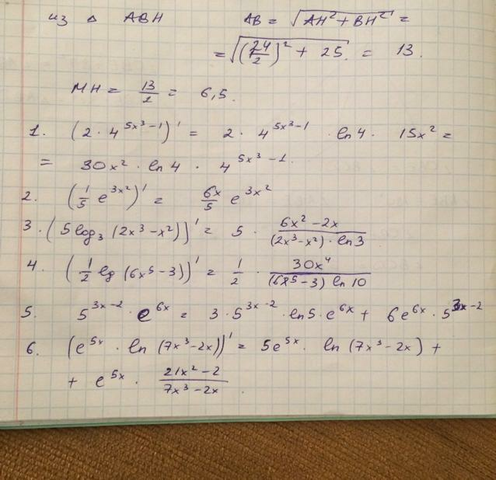 из △ ABH AB = √(AH² + BH²) =
= √((24/2)² + 25) = 13.
MH = 13/2 = 6,5.
1. (2 · 4^(5x³-1))' = 2 · 4^(5x³-1) · ln4 · 15x² =
= 30x² · ln 4 · 4^(5x³-1).
2. (1/5 e^(3x²))' = 6x/5 e^(3x²)
3. (5 log₃ (2x³-x²))' = 5 · (6x²-2x)/((2x³-x²) · ln3)
4. (1/2 lg (6x⁵-3))' = 1/2 · 30x⁴/((6x⁵-3) ln 10)
5. 5^(3x-2) · e^(6x) = 3 · 5^(3x-2) · ln5 · e^(6x) + 6e^(6x) · 5^(3x-2)
6. (e^(5x) · ln (7x³-2x))' = 5e^(5x) · ln (7x³-2x) +
+ e^(5x) · (21x²-2)/(7x³-2x).